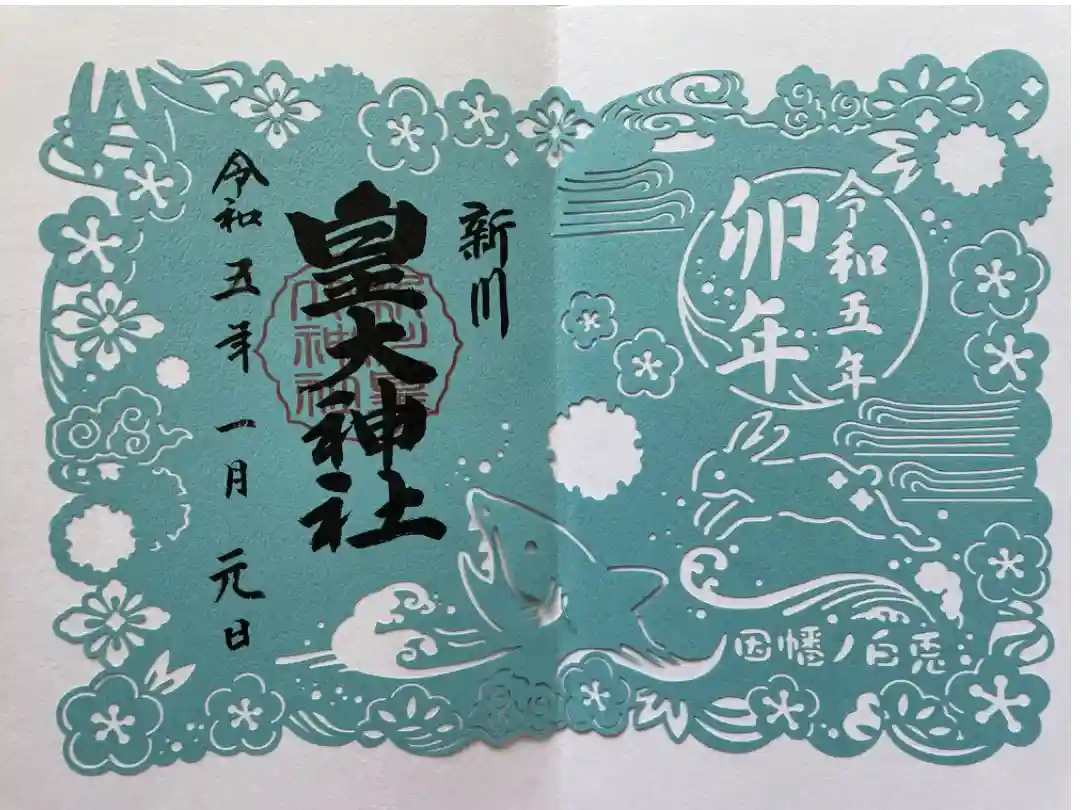 令和五年
卯年
新川
皇大神社
令和五年 一月 元日
因幡ノ白兎